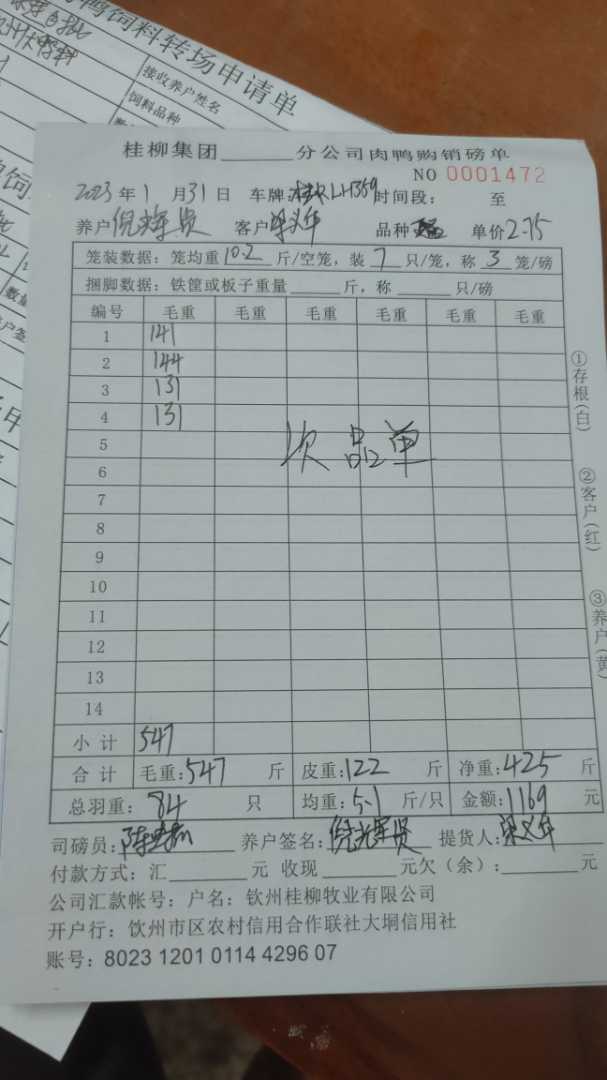 鸭饲料转场申请单
接收养户姓名
饲料品种
桂柳集团______分公司肉鸭购销磅单
NO 0001472
2023年1月31日 车牌:LH359 时间段: 至
养户倪辉贤 客户梁义华 品种 单价2.75
笼装数据:笼均重10.2斤/空笼,装7只/笼,称3笼/磅
捆脚数据:铁筐或板子重量______斤,称______只/磅
编号 毛重 毛重 毛重 毛重 毛重 毛重
1 141
2 144
3 131
4 131
5
次品单
6
7
8
9
10
11
12
13
14
小计 547
合计 毛重:547斤 皮重:122斤 净重:425斤
总羽重:84只 均重:5.1斤/只 金额:1169元
司磅员:陈 养户签名:倪辉贤 提货人:梁义华
付款方式:汇______元 收现______元欠(余):______元
公司汇款帐号:户名:钦州桂柳牧业有限公司
开户行:钦州市区农村信用合作联社大垌信用社
账号:8023 1201 0114 4296 07
①存根(白)
②客户(红)
③养户(黄)